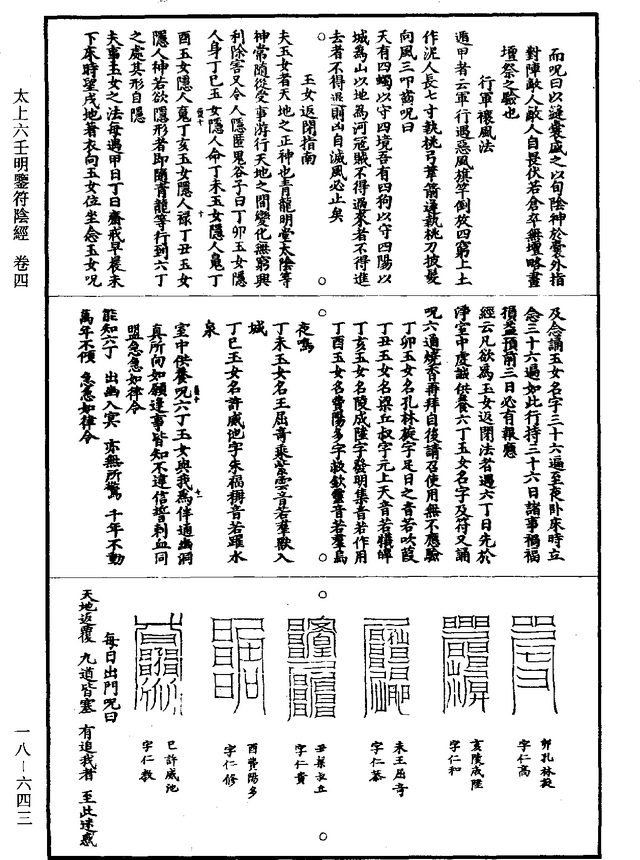 而呪曰以縫囊盛之以旬陰神於囊外指
對陣敵人敵人自畏伏若倉卒無壇略畫
壇祭之驗也
行軍禳風法
遁甲者云軍行遇惡風旗竿倒放四窮上土
作泥人長七寸執桃弓葦箭逢執桃刀披髮
向風三叩齒呪曰
天有四蠋以守四境吾有四狗以守四陽以
城為山以地為河寇賊不得過來者不得進
去者不得退前凶自滅風必止矣
玉女返閉指南
夫玉女者天地之正神也青龍明堂太陰等
神常隨從受事游行天地之間變化無窮興
利除害又令人隱匿鬼谷子曰丁卯玉女隱
人身丁巳玉女隱人命丁未玉女隱人䰟丁
酉玉女隱人䰟丁亥玉女隱人祿丁丑玉女
隱人神若欲隱形者即隨青龍等行到六丁
之處其形自隱
夫事玉女之法每遇甲日丁日齋戒早晨未
下床時望戌地著衣向玉女位坐念玉女呪
及念誦玉女名字三十六遍至夜卧床時立
念三十六遍如此行持三十六日諸事禍福
損益預前三日必有報應
經云凡欲為玉女返閉法者遇六丁日先於
淨室中虔誠供養六丁玉女名字及符又誦
呪六通燒香再拜自後請召使用無不應驗
丁卯玉女名孔林蔙字足日之音若吹葭
丁丑玉女名梁丘叔字元上天音若犢啤
丁亥玉女名陵成陸字發明集音若作用
丁酉玉女名費陽多字叔欽靈音若羣鳥
夜鳴
丁未玉女名王屈奇乘紫雲音若羣獸入
城
丁巳玉女名許威池字朱福稱音若躍水
泉
室中供養呪六丁玉女與我為伴通幽洞
真所向如願逢事皆知不違信誓刺血同
盟急急如律令
能知六丁 出幽入冥 亦無所驚 千年不動
萬年不傾 急急如律令
卯孔林蔙
字仁高
亥陵成陸
字仁和
未王屈奇
字仁恭
丑梁叔丘
字仁貴
酉費陽多
字仁修
巳許威池
字仁敎
每日出門呪曰
天地返覆 九道皆塞 有追我者 至此迷惑
太上六壬明鑒符陰經 卷四
一八－六四三